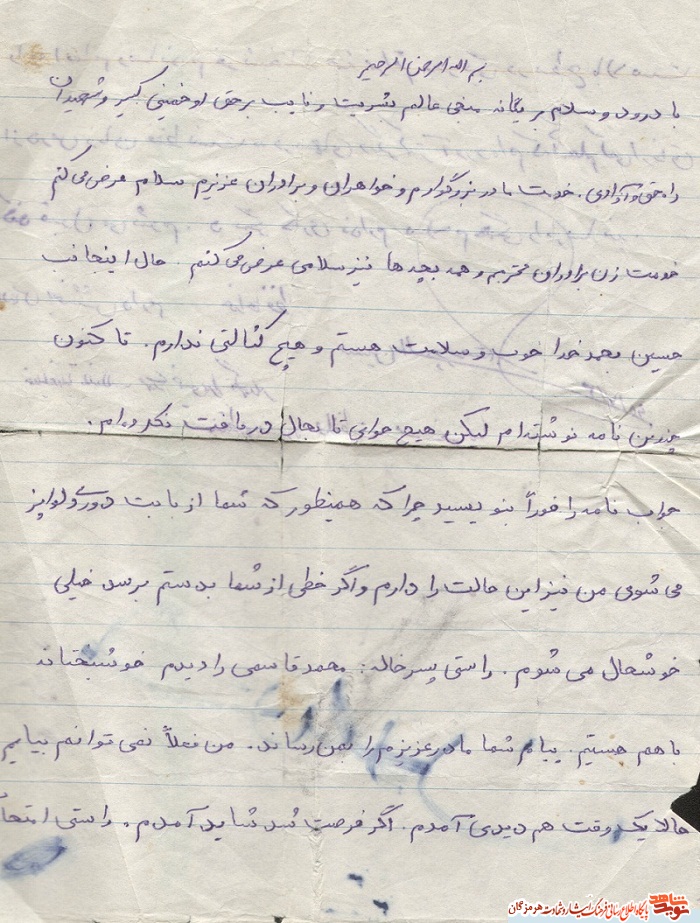 بسم الله الرحمن الرحیم
با درود و سلام بر یگانه منجی عالم بشریت و نایب بر حق او خمینی کبیر و شهیدان
راه حق و آزادی. خدمت مادر بزرگوارم و خواهران و برادران عزیزم سلام عرض می کنم
خدمت زن برادران محترم و همه بچه ها نیز سلامی عرض می کنم. حال اینجانب
حسین بحمد خدا خوب و سلامت هستم و هیچ کسالتی ندارم. تا کنون
چندین نامه نوشته ام لیکن هیچ جوابی تا بحال دریافت نکرده ام.
جواب نامه را فوراً بنویسید چرا که همینطور که شما از بابت دوری دلواپز
می شوی من نیز این حالت را دارم و اگر خطی از شما بدستم برسد خیلی
خوشحال می شوم. راستی پسرخاله: محمد قاسمی را دیدم خوشبختانه
با هم هستیم. پیام شما مادر عزیزم را بمن رساند. من فعلاً نمی توانم بیایم
حالا یک وقت هم دیدی آمدم. اگر فرصت شد شاید آمدم. راستی
نوید شاهد
پایگاه اطلاع رسانی فرهنگ ایثار و شهادت هرمزگان